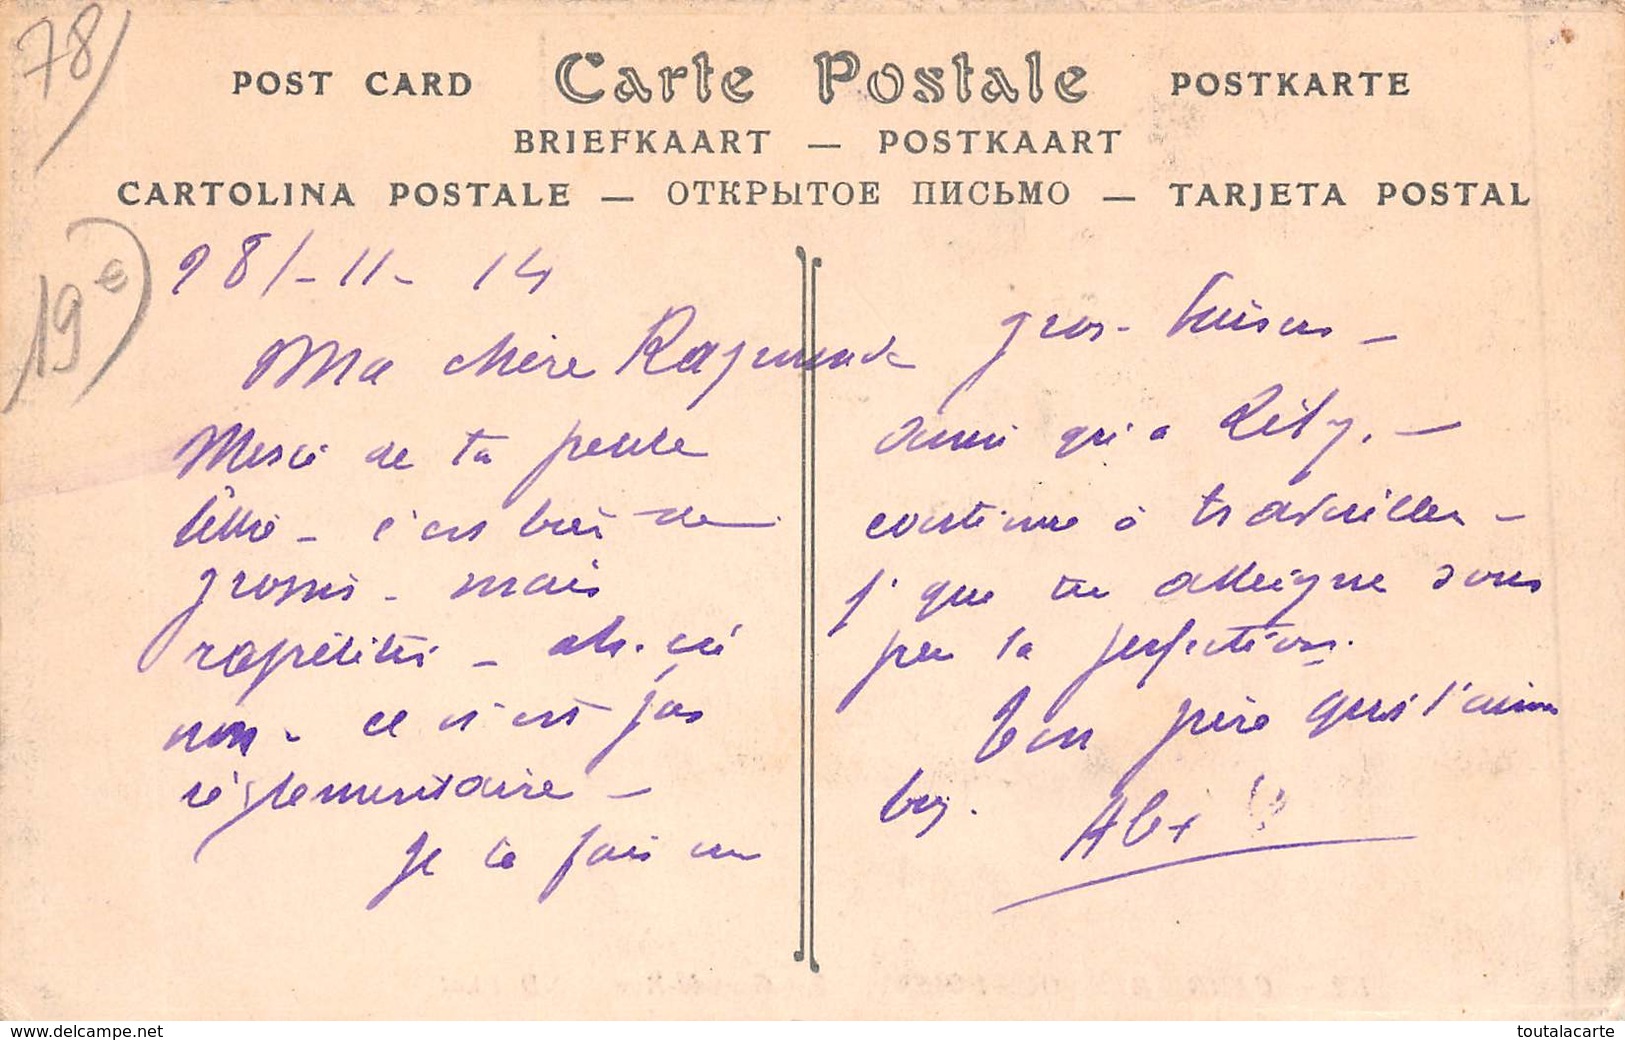 78/
POST CARD Carte Postale POSTKARTE
BRIEFKAART — POSTKAART
CARTOLINA POSTALE — ОТКРЫТОЕ ПИСЬМО — TARJETA POSTAL
19€
28/-11- 14
Ma chère Raymonde
Merci de ta petite
lettre - c'est très
- mais
non - ce n'est pas
réglementaire -
Je te fais un
gros baiser -
ainsi qu'à Kéty. -
continue à travailler -
que tu atteignes sous
peu la perfection.
Ton père qui t'aime
bcp. Alex
www.delcampe.net
toutalacarte